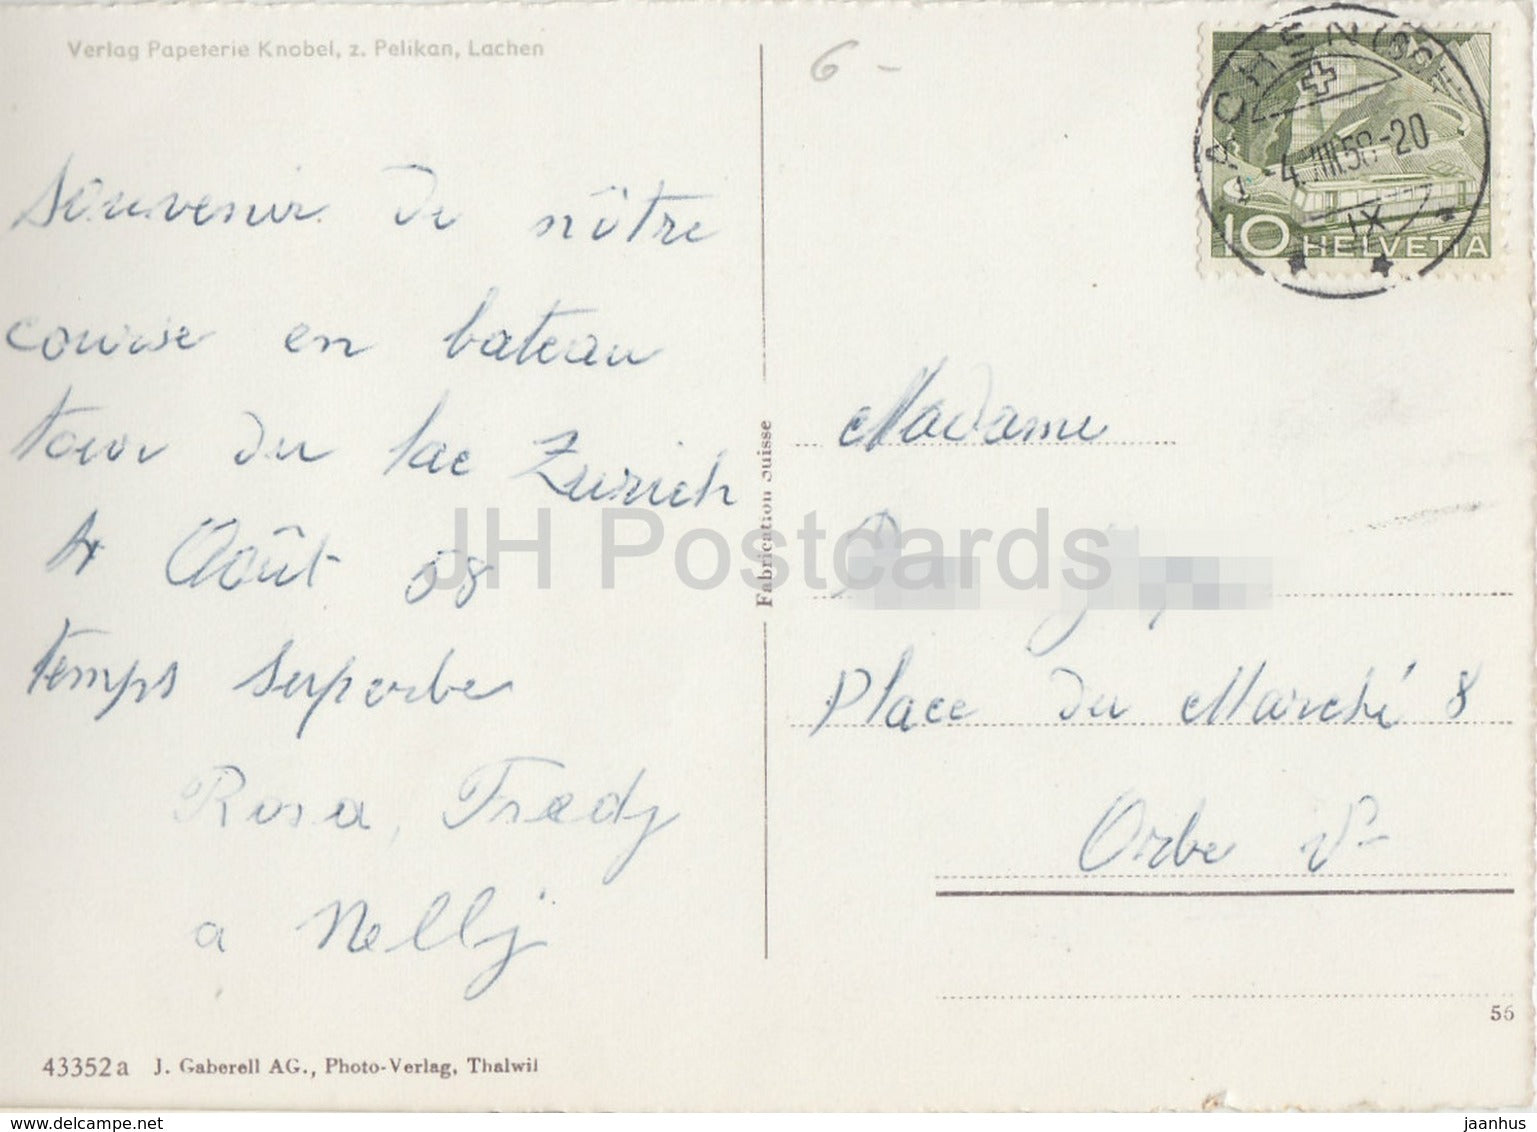 Verlag Papeterie Knobel, z. Pelikan, Lachen
6 -
Souvenir de nôtre
course en bateau
tour du lac Zurich
4 Août 58
temps superbe
Rosa, Fredy
a Nelly
43352a J. Gaberell AG., Photo-Verlag, Thalwil
Fabrication Suisse
LACHEN (SCH
-4.VIII.58-20
IX
10 HELVETIA
Madame
Place du Marché 8
Orbe Vd
56
JH Postcards
www.delcampe.net
jaanhus